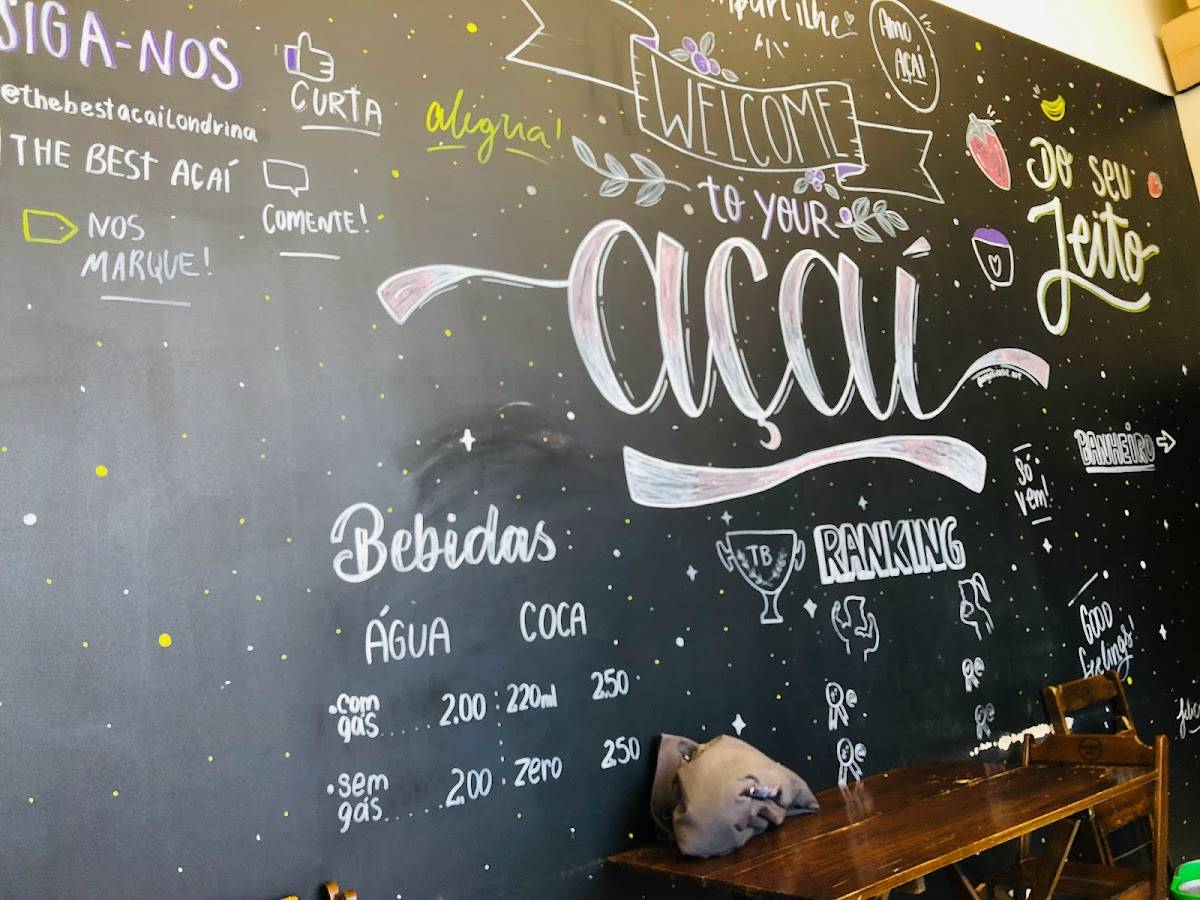 SIGA-NOS
@thebestacailondrina
THE BEST AÇAÍ
NOS
MARQUE!
CURTA
COMENTE!
alegria!
Amo
AÇAÍ
WELCOME
to YOUR
açaí
Do seu
Jeito
BANHEIRO
Só
vem!
Bebidas
ÁGUA
COCA
.com
gás..... 2.00
220ml 2.50
.sem
gás..... 2.00
zero 2.50
TB
RANKING
GOOD
feelings!